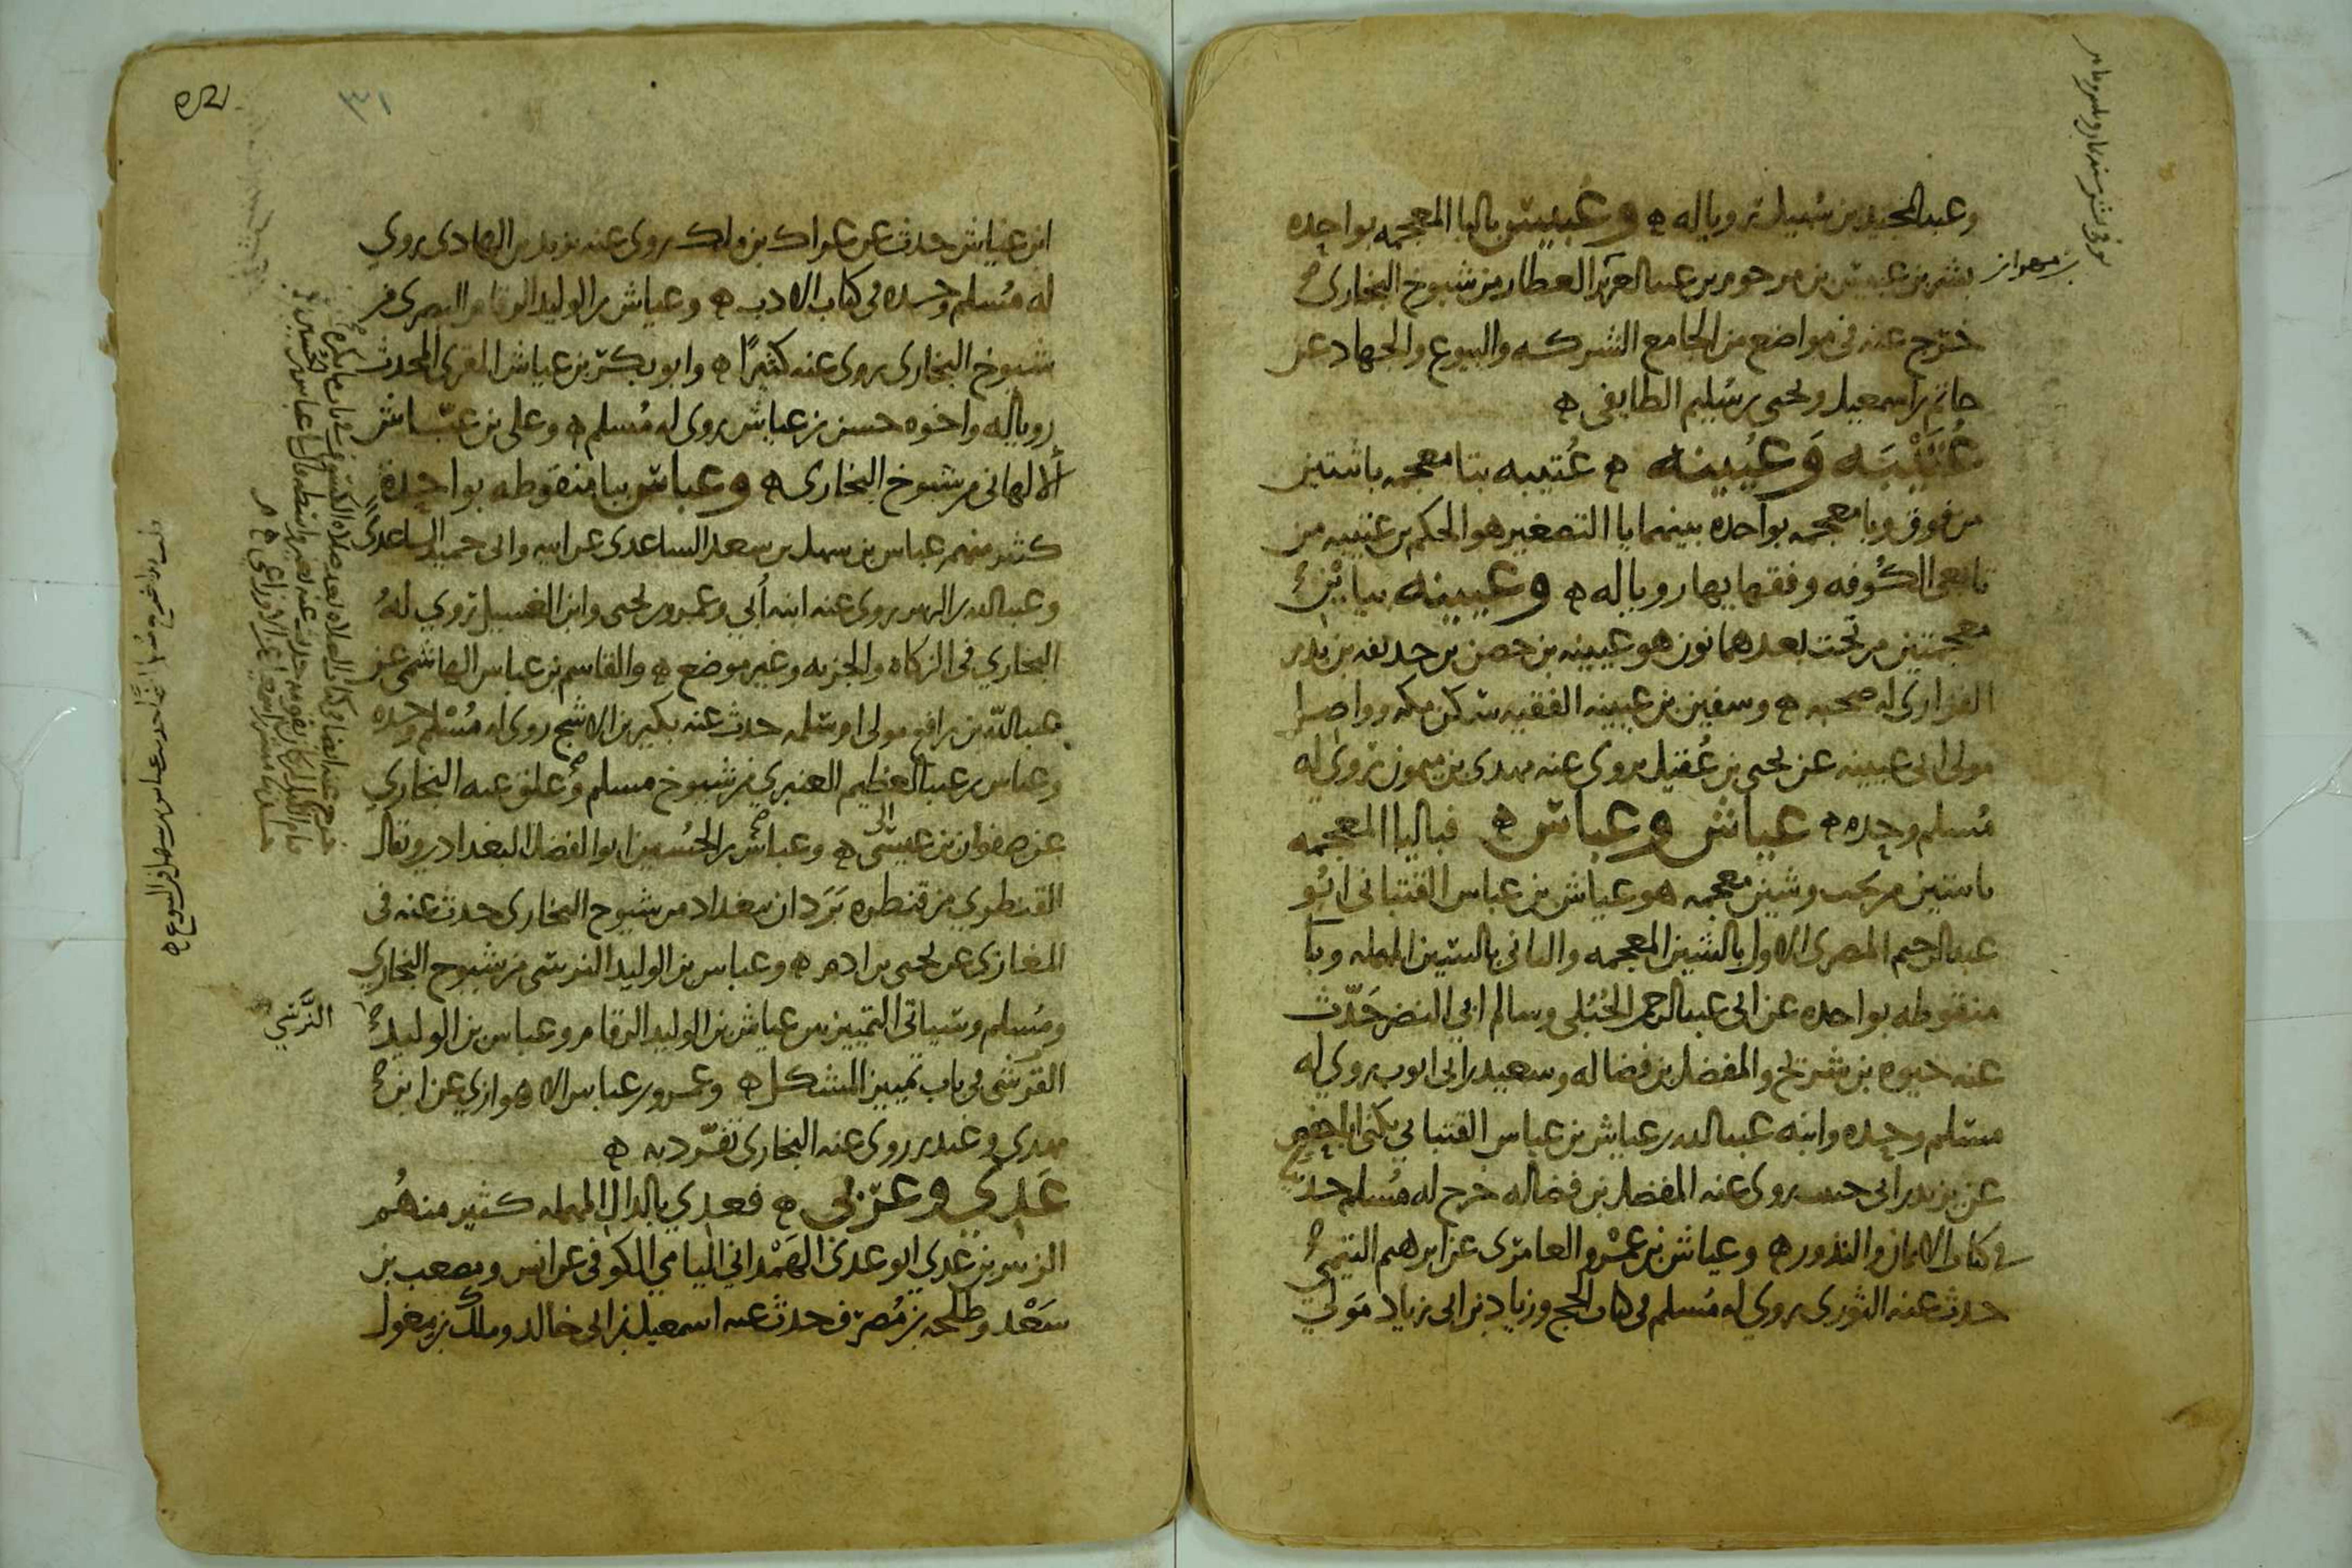 وعبد المجيد بن سهيل رويا له ه وعبيس بالبا المعجمه بواحده
بشر بن عبيس بن مرحوم بن عبد العزيز العطار من شيوخ البخاري
خرج عنه في مواضع من الجامع الشركه والبيوع والجهاد عن
حاتم بن اسمعيل ويحيى بن سليم الطايفي ه
عُتَيْبَه وَعُيينه ه عُتيبه بتا معجمه باثنتين
من فوق وبا معجمه بواحده بينهما يا التصغير هو الحكم بن عتيبه من
تابعي الكوفه وفقهايها رويا له ه وعيينه بيايْن
معجمتين من تحت بعدهما نون هو عيينه بن حصن بن حذيفه بن بدر
الفزاري له صحبه ه وسفين بن عيينه الفقيه سكن مكه وواصل
مولى ابي عيينه عن يحيى بن عُقيل يروي عنه مهدي بن ميمون روى له
مُسلم وحده ه عياش وعباس ه فباليا المعجمه
باثنتين من تحت وشين معجمه هو عياش بن عباس القتباني ابُو
عبد الرحيم المصري الاول بالشين المعجمه والثاني بالسين المهمله وبا
منقوطه بواحده عن ابي عبد الرحمن الحُبُلي وسالم ابي النضر حَدّث
عنه حيوه بن شريح والمفضل بن فضاله وسعيد بن ابي ايوب روى له
مسلم وحده وابنه عبد الله بن عياش بن عباس القتباني يكنى ابا حفص
عن يزيد بن ابي حبيب روى عنه المفضل بن فضاله خرج له مُسلم
في كتاب الايمان والنذور ه وعياش بن عمْرو العامري عن ابرهيم التيمي
حدث عنه الثوري يروي له مُسلم في كتاب الحج وزياد بن ابي زياد مَولى
بن مهران
٣١
ابن عياش حدث عن عراك بن ملك روى عنه يزيد بن الهادي يروي
له مُسلم وحده في كتاب الادب ه وعياش بن الوليد الرقام البصري من
شيوخ البخاري يروي عنه كثيرًا ه وابو بكر بن عياش المقرئ المحدث
رويا له واخوه حسن بن عياش روى له مُسلم ه وعلي بن عيّاش
الالهاني من شيوخ البخاري ه وعباس ببا منقوطه بواحدة
كثير منهم عباس بن سهل بن سعد الساعدي عن ابيه وابي حميد الساعدي
وعبد الله بن الزبير روى عنه ابنه أُبي وعمرو بن يحيى وابن الغسيل روى لهُ
البخاري في الزكاه والجزيه وغير موضع ه والقاسم بن عباس الهاشمي عن
عبد الله بن رافع مولى ام سلمه حدث عنه بكير بن الاشج روى له مُسْلم وحده
وعباس بن عبد العظيم العنبري من شيوخ مسلم وعلق عنه البخاري
عن صفوان بن عيسى ه وعباس بن الحُسين ابو الفضل البغدادي ويقال
القنطري من قنطره بَرَدان بغداد من شيوخ البخاري حدث عنه في
المغازي عن يحيى بن ادم ه وعباس بن الوليد النرسي من شيوخ البخاري
ومُسلم وسياتي التمييز بين عياش بن الوليد الرقام وعباس بن الوليد
القرشي في باب تمييز المشكل ه وعمرو بن عباس الاهوازي عن ابن
مهدي وغندر روى عنه البخاري تفرّد به ه
عَدِي وعَرَبي ه فعدي بالدال المهمله كثير منهُم
الزبير بن عَدي ابو عدي الهَمْداني اليامي الكوفي عن انس ومصعب بن
سَعْد وطلحه بن مُصرّف حدث عنه اسمعيل بن ابي خالد وملك بن مِغول
النَّرْسي